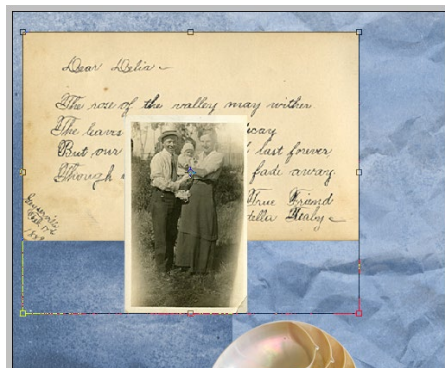 Dear Delia
The rose of the valley may wither
The leaves cay
But our last forever
Though fade away.
True Friend
tella Healy